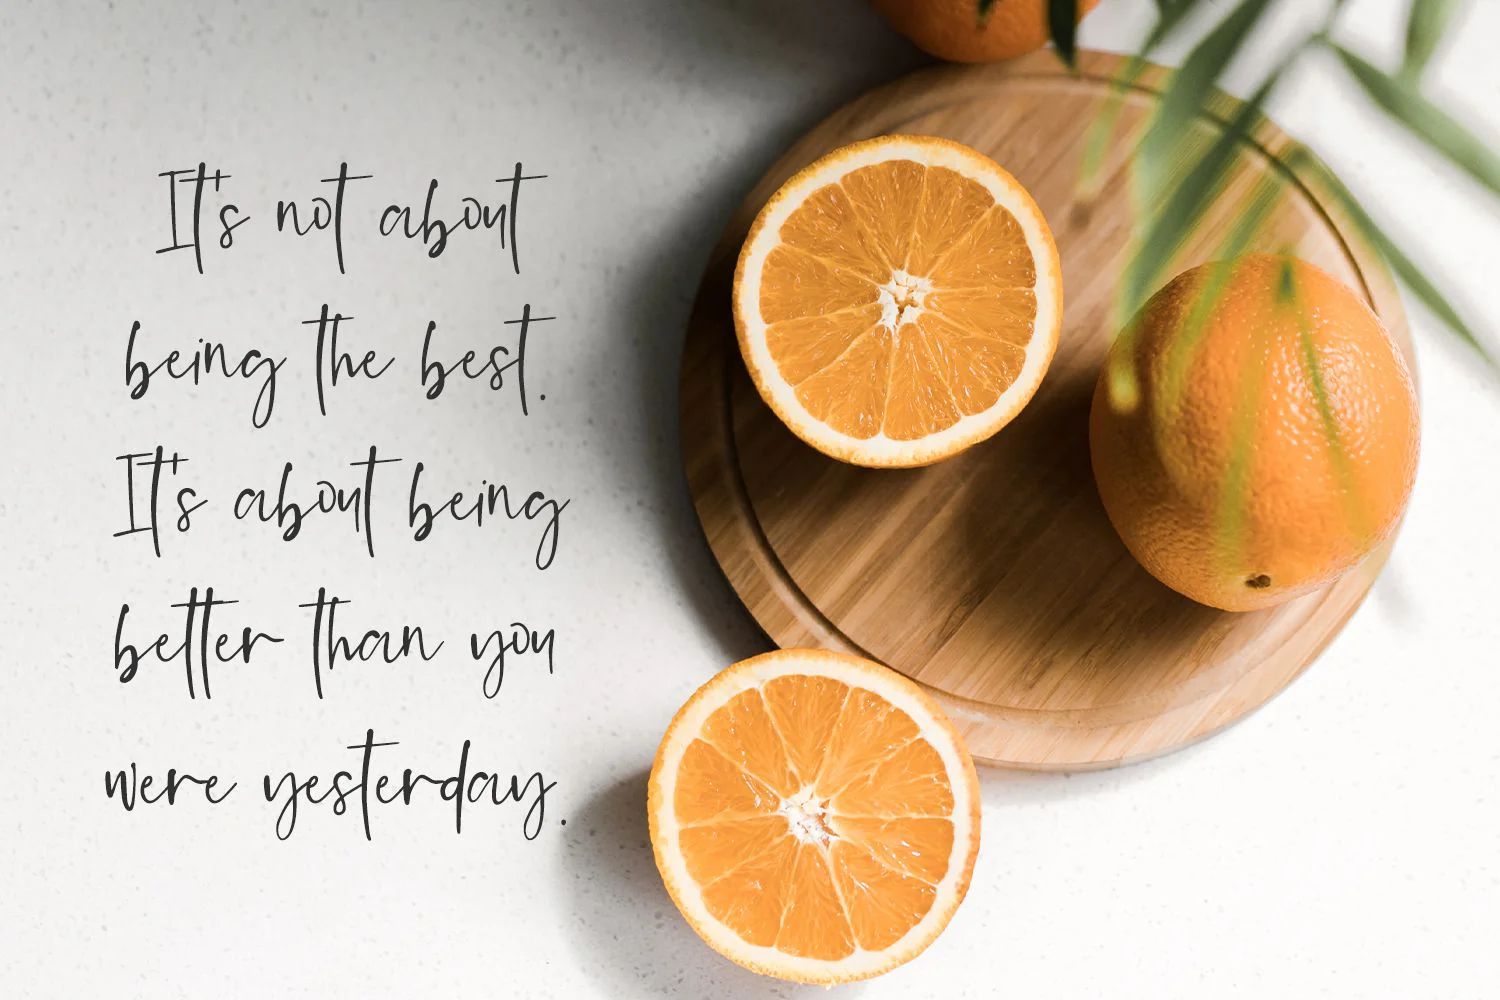 It's not about
being the best.
It's about being
better than you
were yesterday.